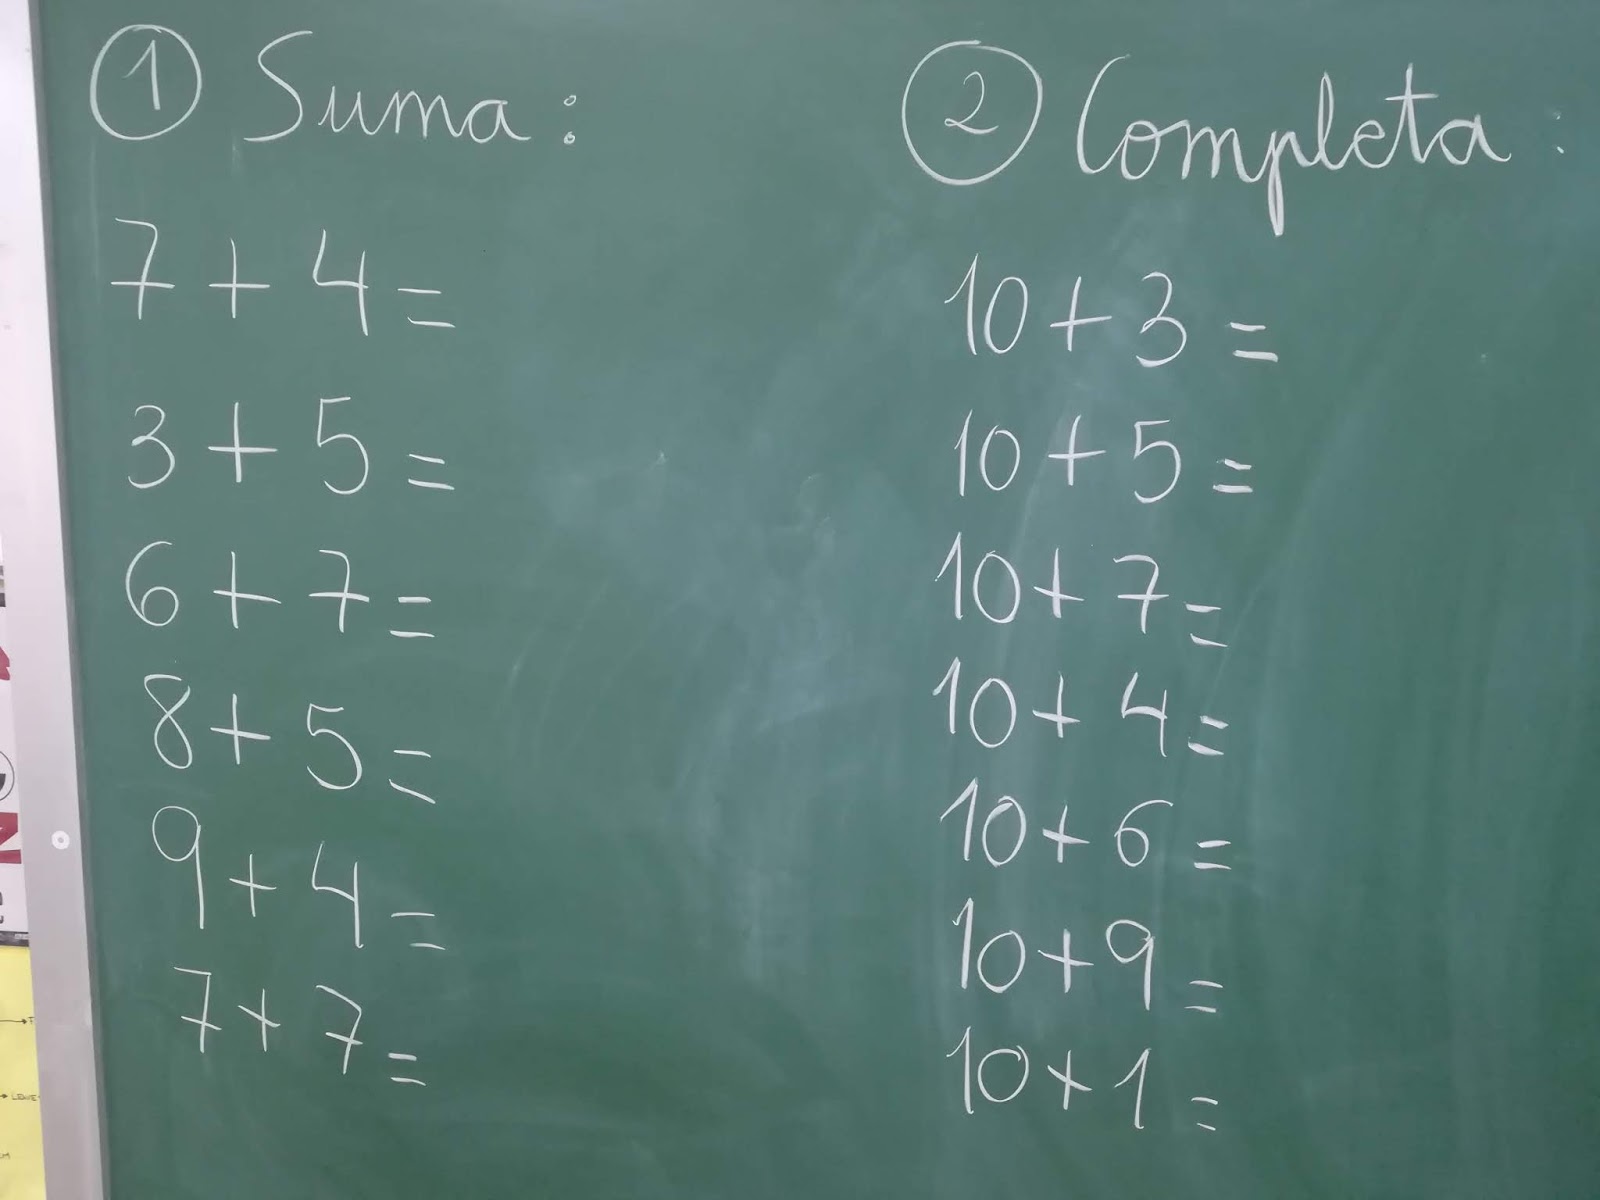 1 Suma:
7 + 4 =
3 + 5 =
6 + 7 =
8 + 5 =
9 + 4 =
7 + 7 =
2 Completa:
10 + 3 =
10 + 5 =
10 + 7 =
10 + 4 =
10 + 6 =
10 + 9 =
10 + 1 =